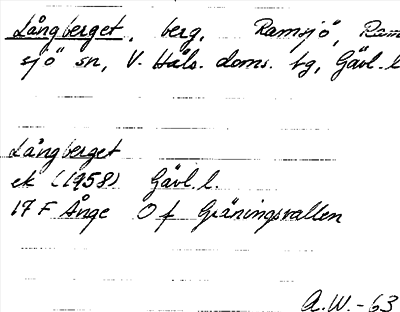 Långberget, berg, Ramsjö, Ram
sjö sn, V. Häls. doms. tg, Gävl. l
Långberget
ek (1958) Gävl. l.
17 F Ånge O f Gräningsvallen
A.W. - 63